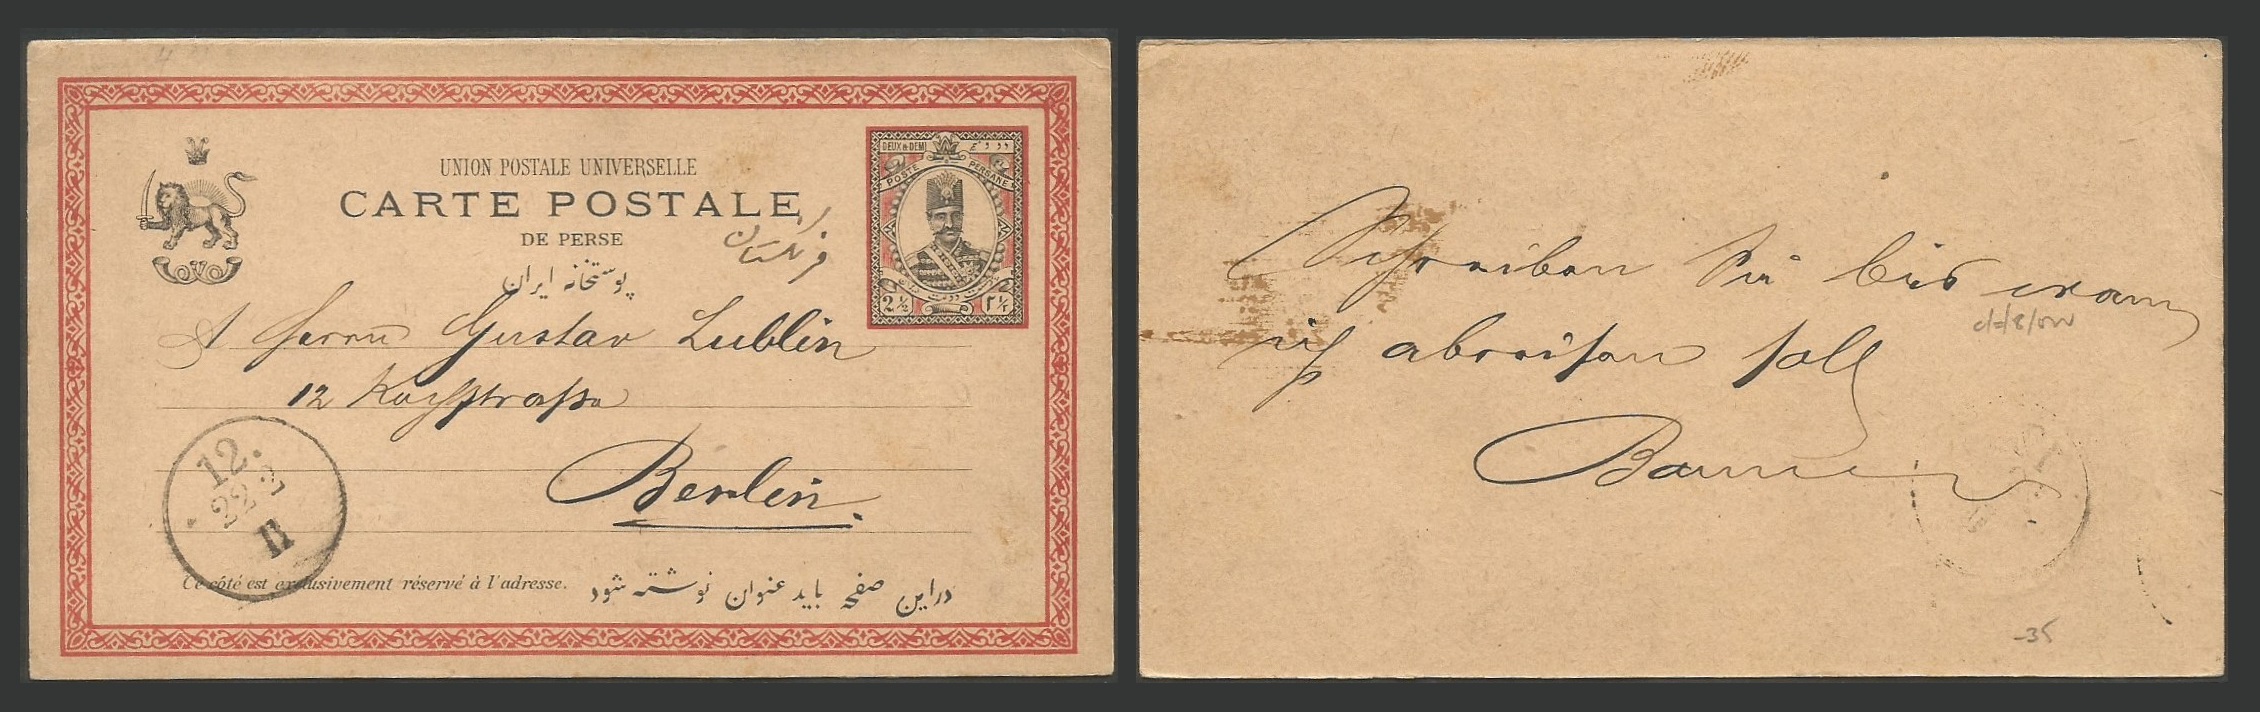 UNION POSTALE UNIVERSELLE
CARTE POSTALE
DE PERSE
پوستخانه ایران
فرنگستان
DEUX & DEMI
POSTE PERSANE
2½ ۲½
A Herrn Gustav Lublin
12 Kochstrasse
Berlin.
12.
22 2
II
Ce côté est exclusivement réservé à l'adresse.
دراین صفحه باید عنوان نوشته شود
Schreiben Sie bis wann
ich abreisen soll
-35